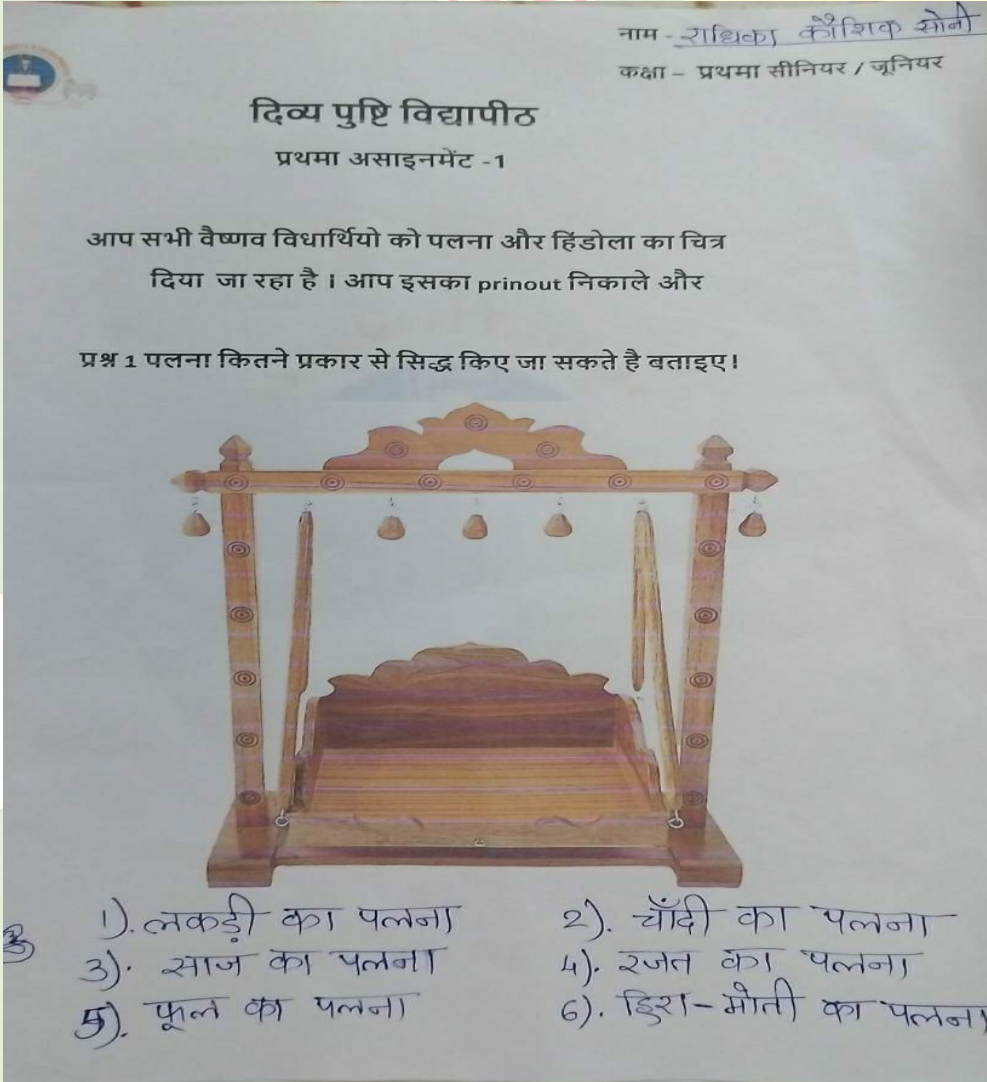 नाम - राधिका कौशिक सोनी
कक्षा – प्रथमा सीनियर / जूनियर
दिव्य पुष्टि विद्यापीठ
प्रथमा असाइनमेंट -1
आप सभी वैष्णव विधार्थियो को पलना और हिंडोला का चित्र
दिया जा रहा है । आप इसका prinout निकाले और
प्रश्न 1 पलना कितने प्रकार से सिद्ध किए जा सकते है बताइए।
1). लकड़ी का पलना 2). चाँदी का पलना
3). साज का पलना 4). रजत का पलना
5). फूल का पलना 6). हिरा-मोती का पलना